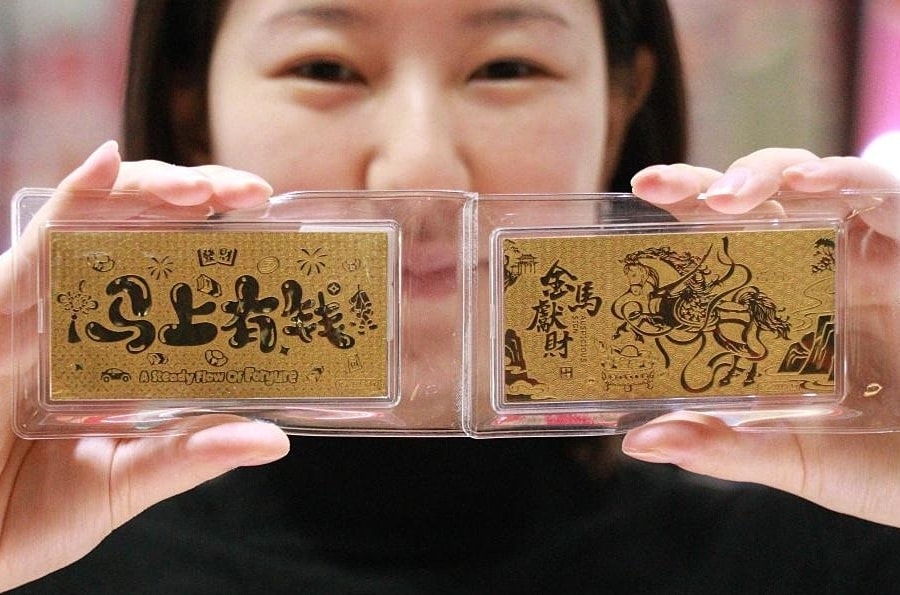 马上有钱
A Steady Flow Of Fortune
金馬
獻財
AUSPICIOUS